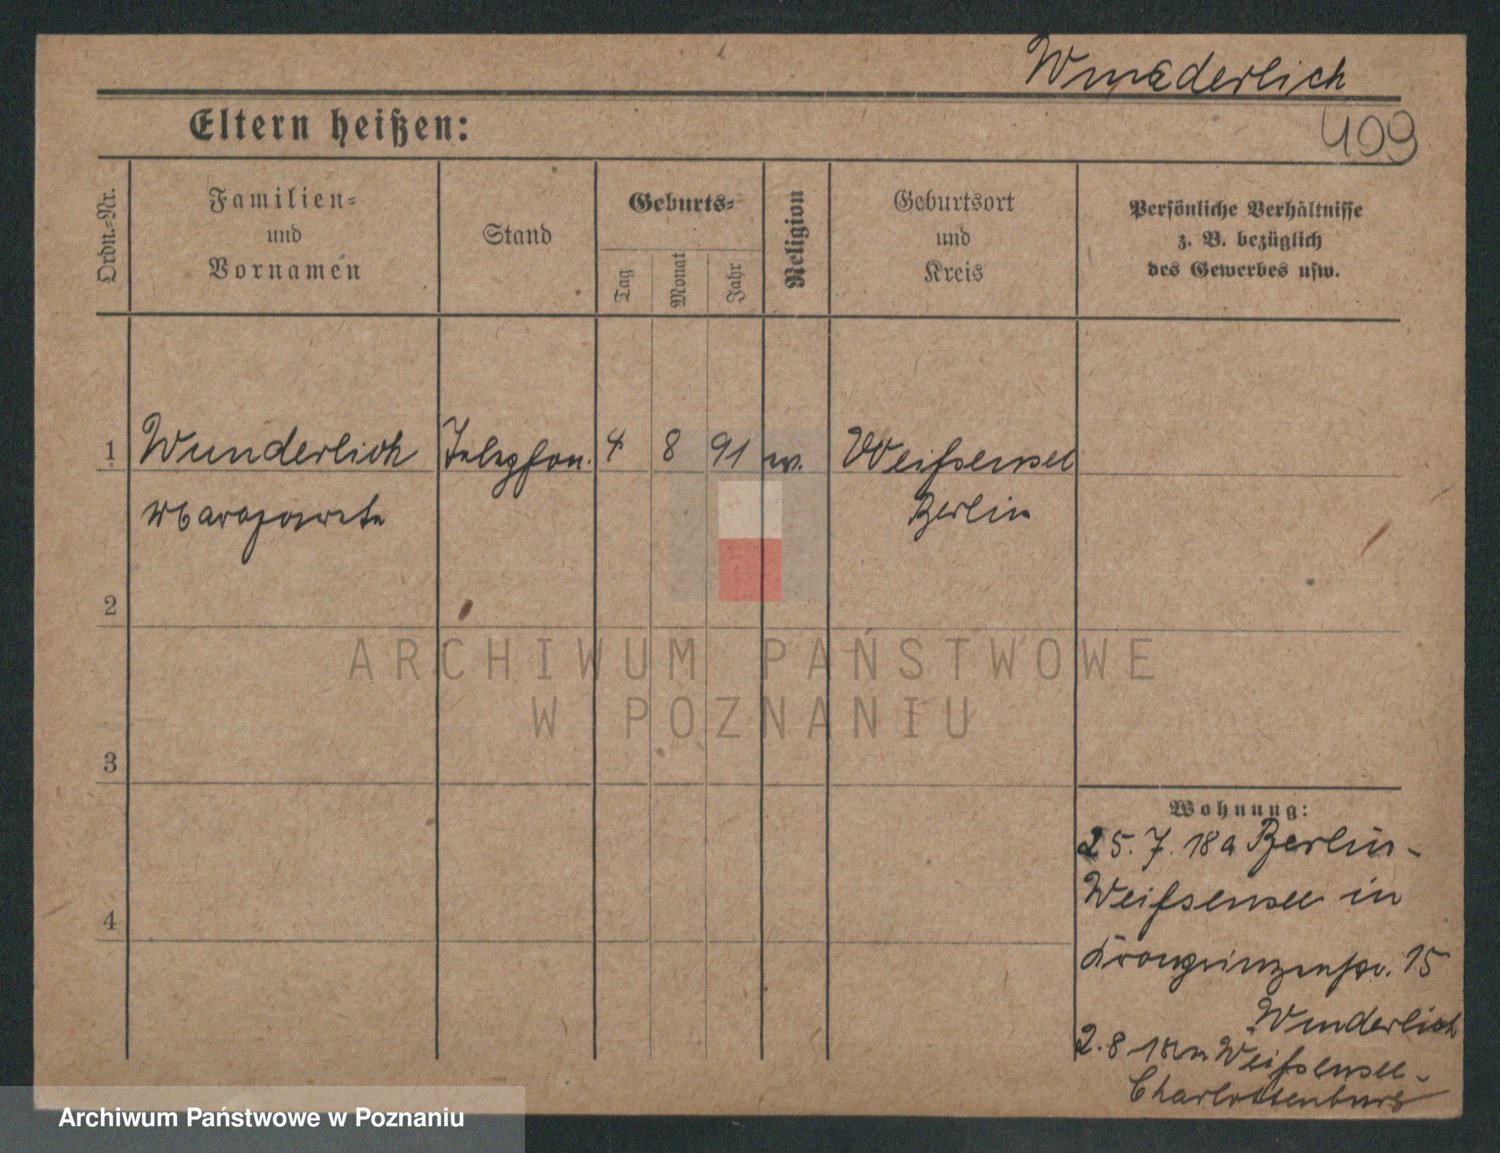 Wunderlich
409
Eltern heißen:
Ordn.-Nr.
Familien-
und
Vornamen
Stand
Geburts-
Tag
Monat
Jahr
Religion
Geburtsort
und
Kreis
Persönliche Verhältnisse
z. B. bezüglich
des Gewerbes usw.
1 Wunderlich Telegfon. 4 8 91 ev. Weißensee
Margarete Berlin
2
ARCHIWUM PAŃSTWOWE
W POZNANIU
3
Wohnung:
25. 7. 18 a Berlin-
Weißensee in
4
Kronprinzenstr. 15
Wunderlich
2. 8 18 n Weißensee-
Charlottenburg
Archiwum Państwowe w Poznaniu